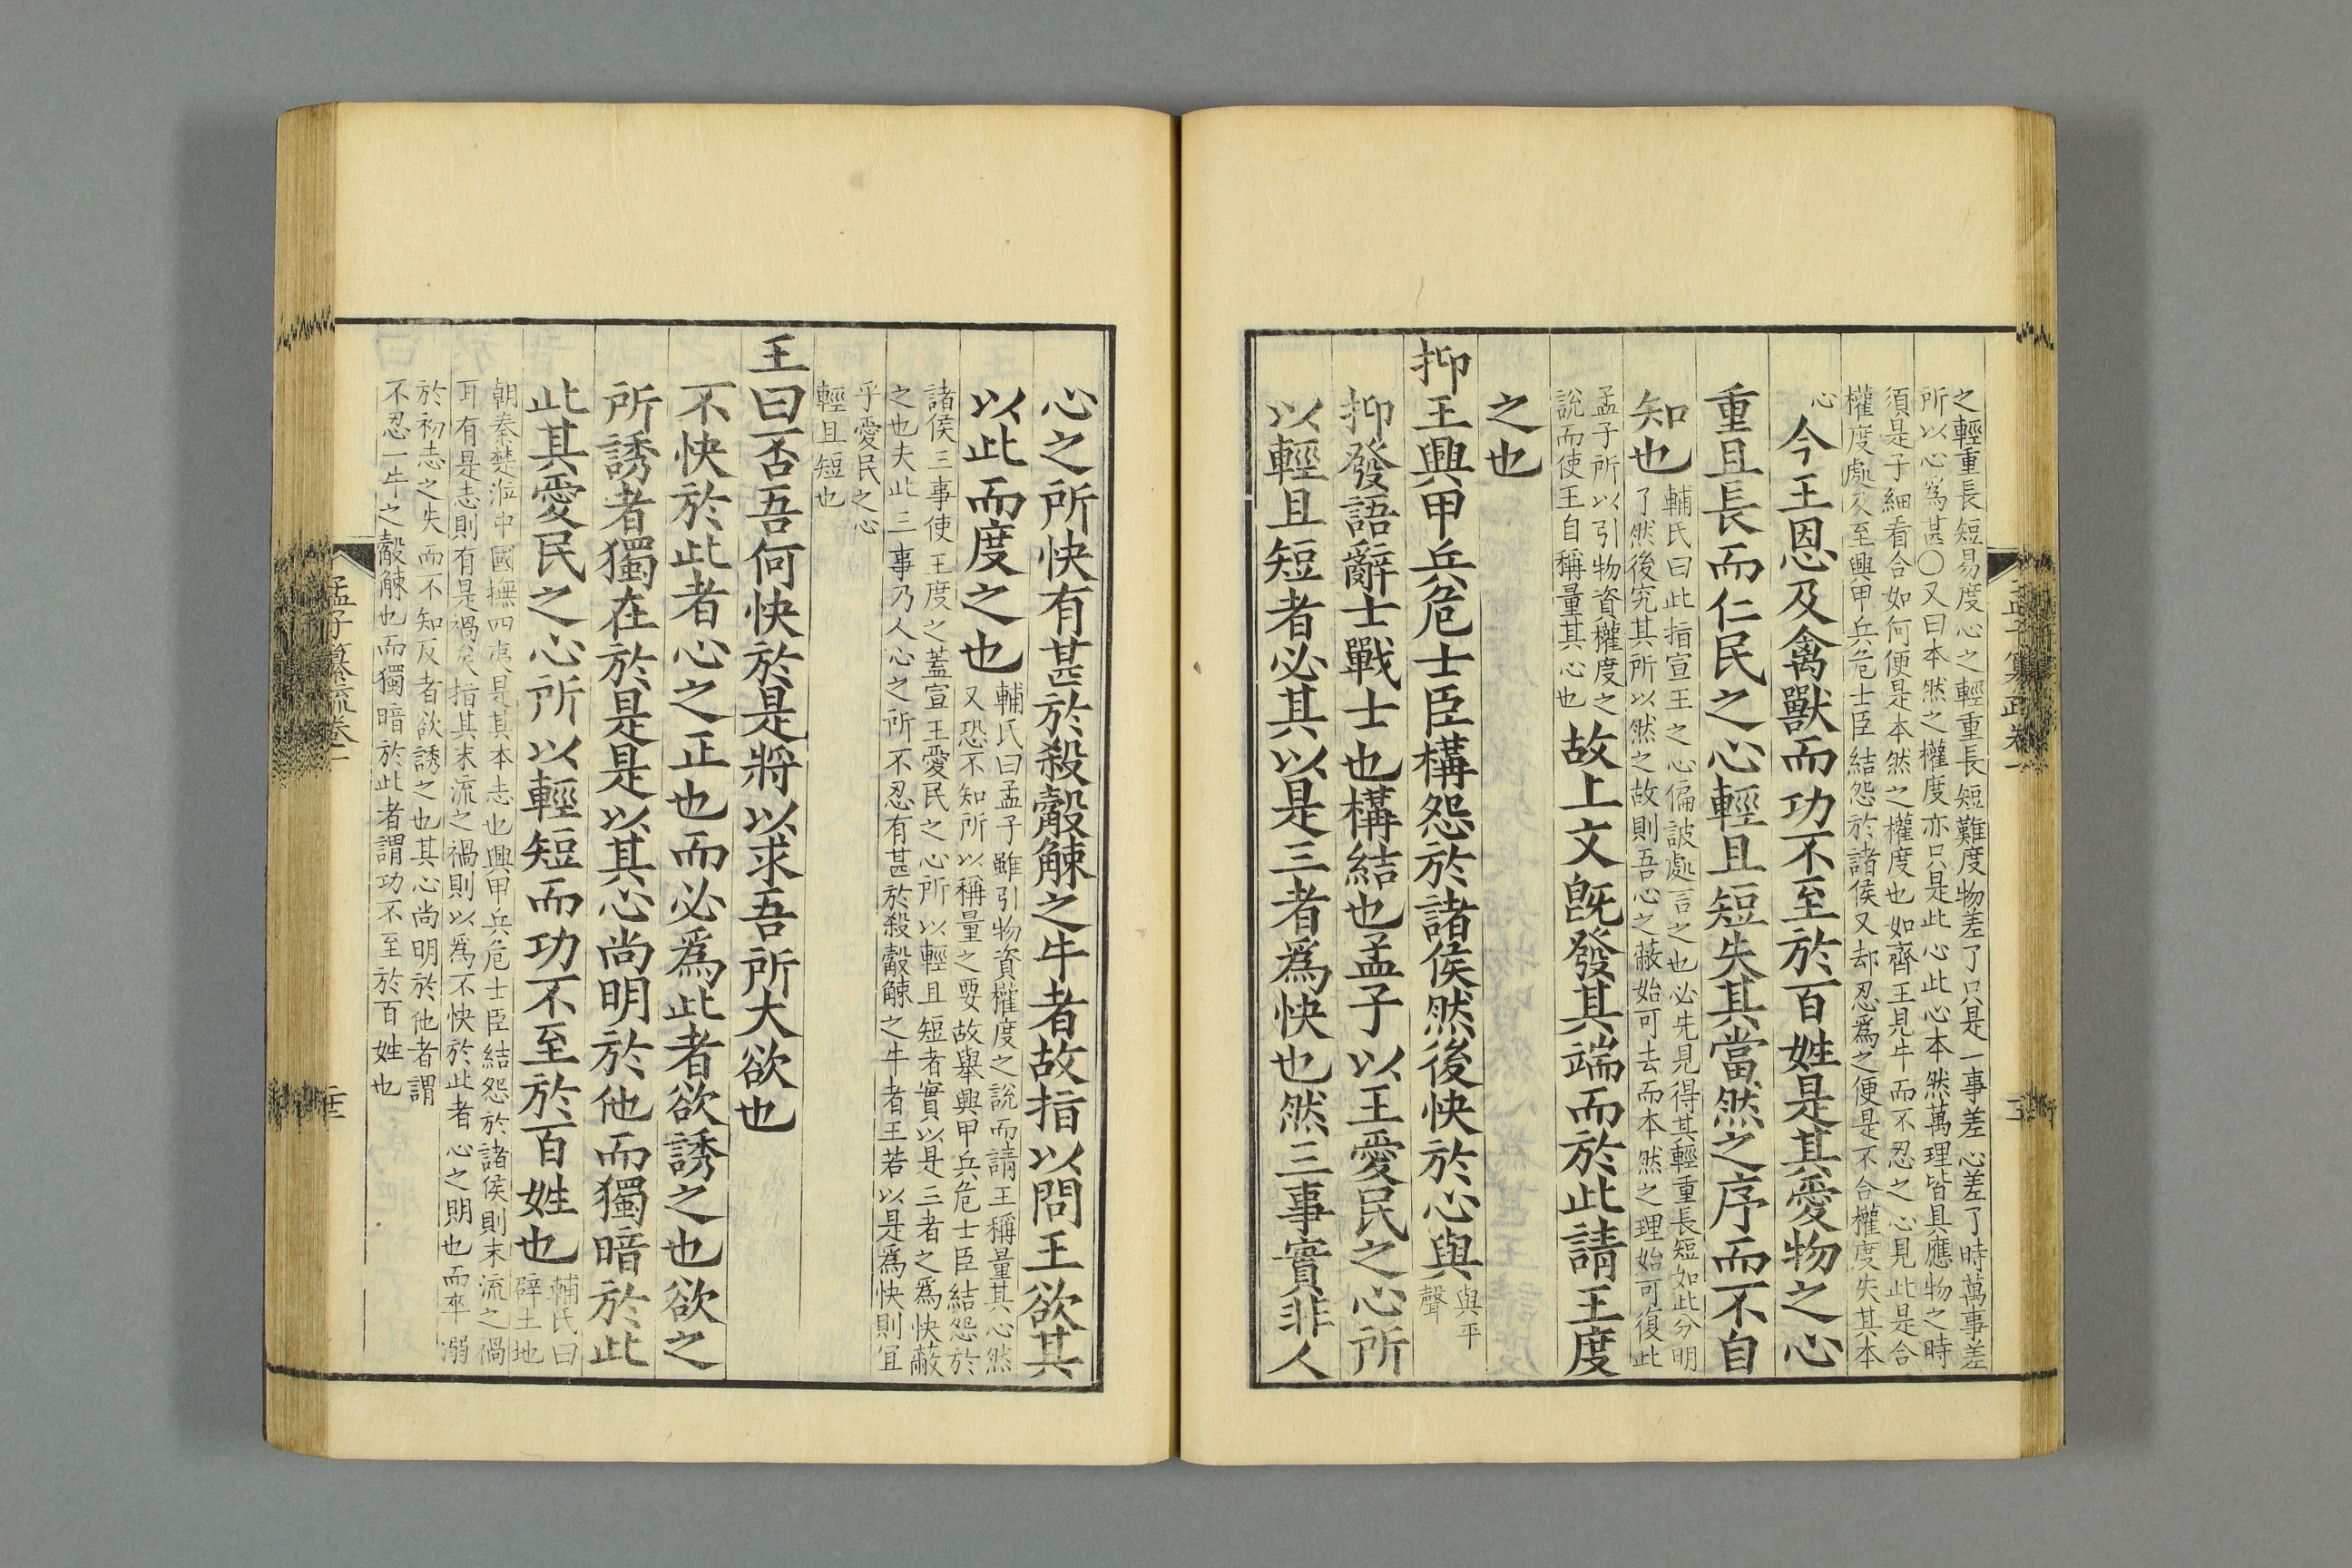 之輕重長短易度心之輕重長短難度物差了只是一事差心差了時萬事差
所以心為甚〇又曰本然之權度亦只是此心此心本然萬理皆具應物之時
須是子細看合如何便是本然之權度也如齊王見牛而不忍之心見此是合
權度處及至興甲兵危士臣結怨於諸侯又却忍為之便是不合權度失其本
心
今王恩及禽獸而功不至於百姓是其愛物之心
重且長而仁民之心輕且短失其當然之序而不自
知也
輔氏曰此指宣王之心偏詖處言之也必先見得其輕重長短如此分明
了然後究其所以然之故則吾心之蔽始可去而本然之理始可復此
孟子所以引物資權度之
說而使王自稱量其心也
故上文旣發其端而於此請王度
之也
抑王興甲兵危士臣構怨於諸侯然後快於心與
與平
聲
抑發語辭士戰士也構結也孟子以王愛民之心所
以輕且短者必其以是三者為快也然三事實非人
心之所快有甚於殺觳觫之牛者故指以問王欲其
以此而度之也
輔氏曰孟子雖引物資權度之說而請王稱量其心然
又恐不知所以稱量之要故舉興甲兵危士臣結怨於
諸侯三事使王度之蓋宣王愛民之心所以輕且短者實以是三者之為快蔽
之也夫此三事乃人心之所不忍有甚於殺觳觫之牛者王若以是為快則宜
乎愛民之心
輕且短也
王曰否吾何快於是將以求吾所大欲也
不快於此者心之正也而必為此者欲誘之也欲之
所誘者獨在於是是以其心尚明於他而獨暗於此
此其愛民之心所以輕短而功不至於百姓也
輔氏曰
辟土地
朝秦楚涖中國撫四夷是其本志也興甲兵危士臣結怨於諸侯則末流之禍
耳有是志則有是禍矣指其末流之禍則以為不快於此者心之明也而卒溺
於初志之失而不知反者欲誘之也其心尚明於他者謂
不忍一牛之觳觫也而獨暗於此者謂功不至於百姓也
孟子纂疏卷一